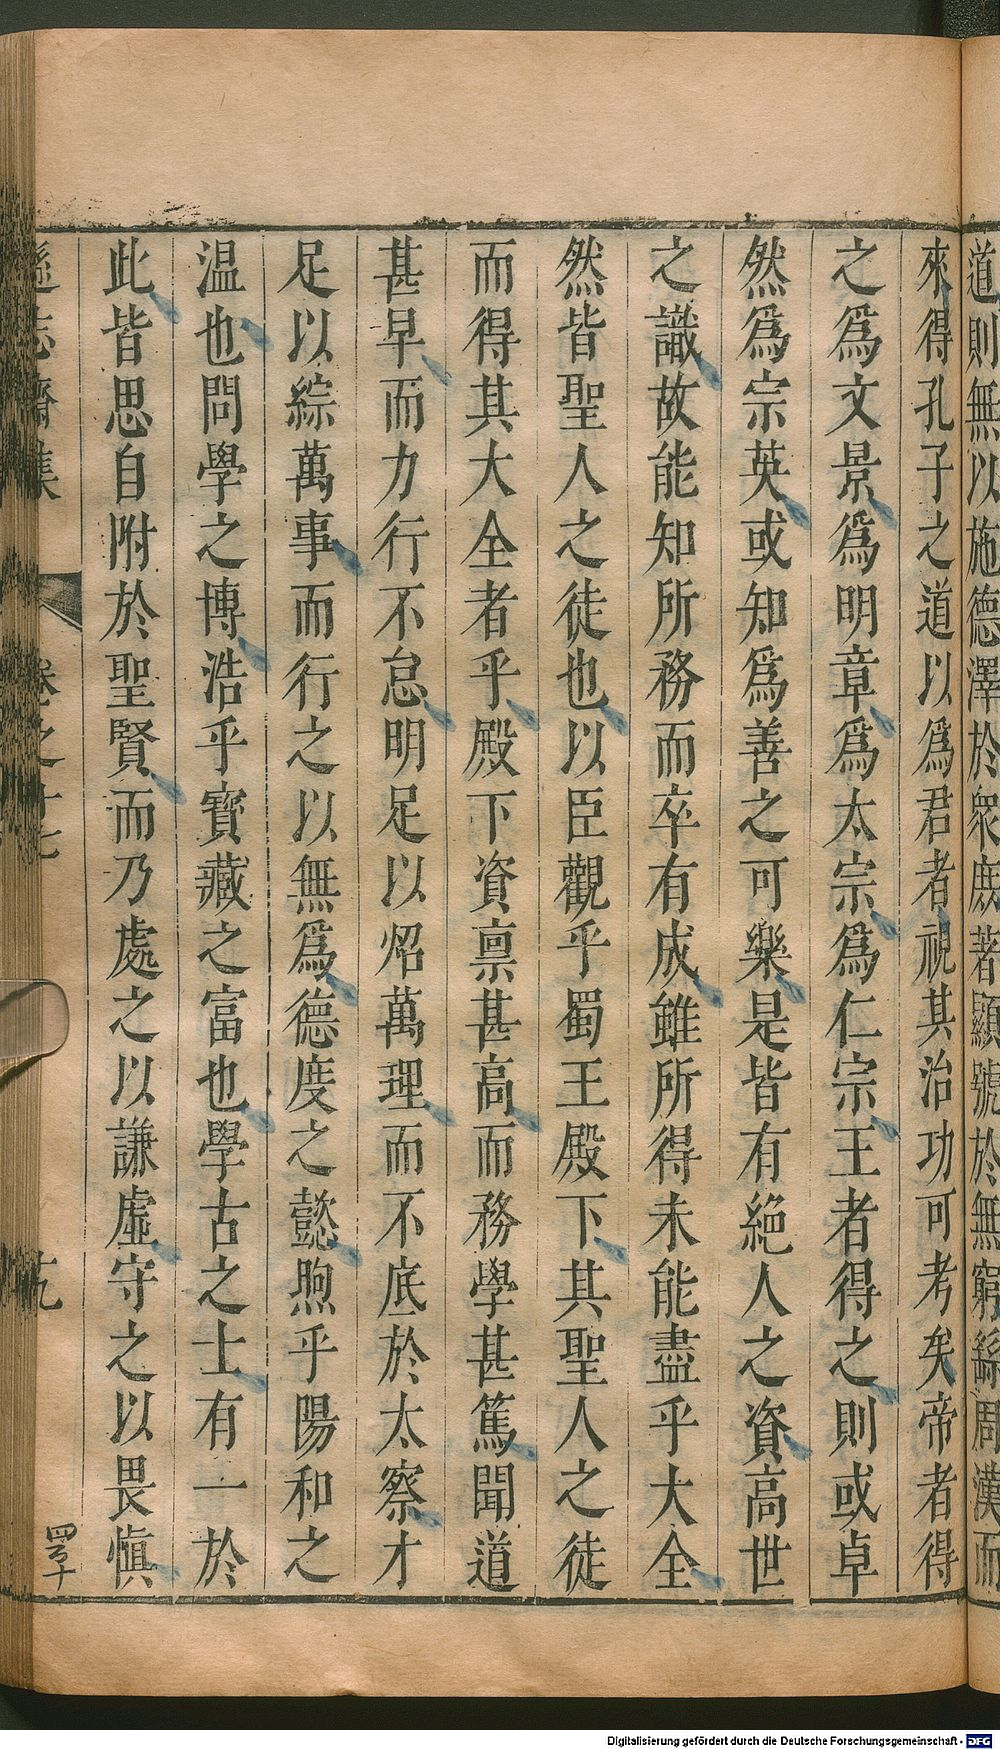 道則無以施德澤於衆庶著顯號於無窮繇周漢而
來得孔子之道以爲君者視其治功可考矣帝者得
之爲文景爲明章爲太宗爲仁宗王者得之則或卓
然爲宗英或知爲善之可樂是皆有絶人之資高世
之識故能知所務而卒有成雖所得未能盡乎大全
然皆聖人之徒也以臣觀乎蜀王殿下其聖人之徒
而得其大全者乎殿下資禀甚高而務學甚篤聞道
甚早而力行不怠明足以炤萬理而不底於太察才
足以綜萬事而行之以無爲德度之懿煦乎陽和之
温也問學之博浩乎寳藏之富也學古之士有一於
此皆思自附於聖賢而乃處之以謙虛守之以畏慎
遜志齋集 卷之十七 九
Digitalisierung gefördert durch die Deutsche Forschungsgemeinschaft - DFG